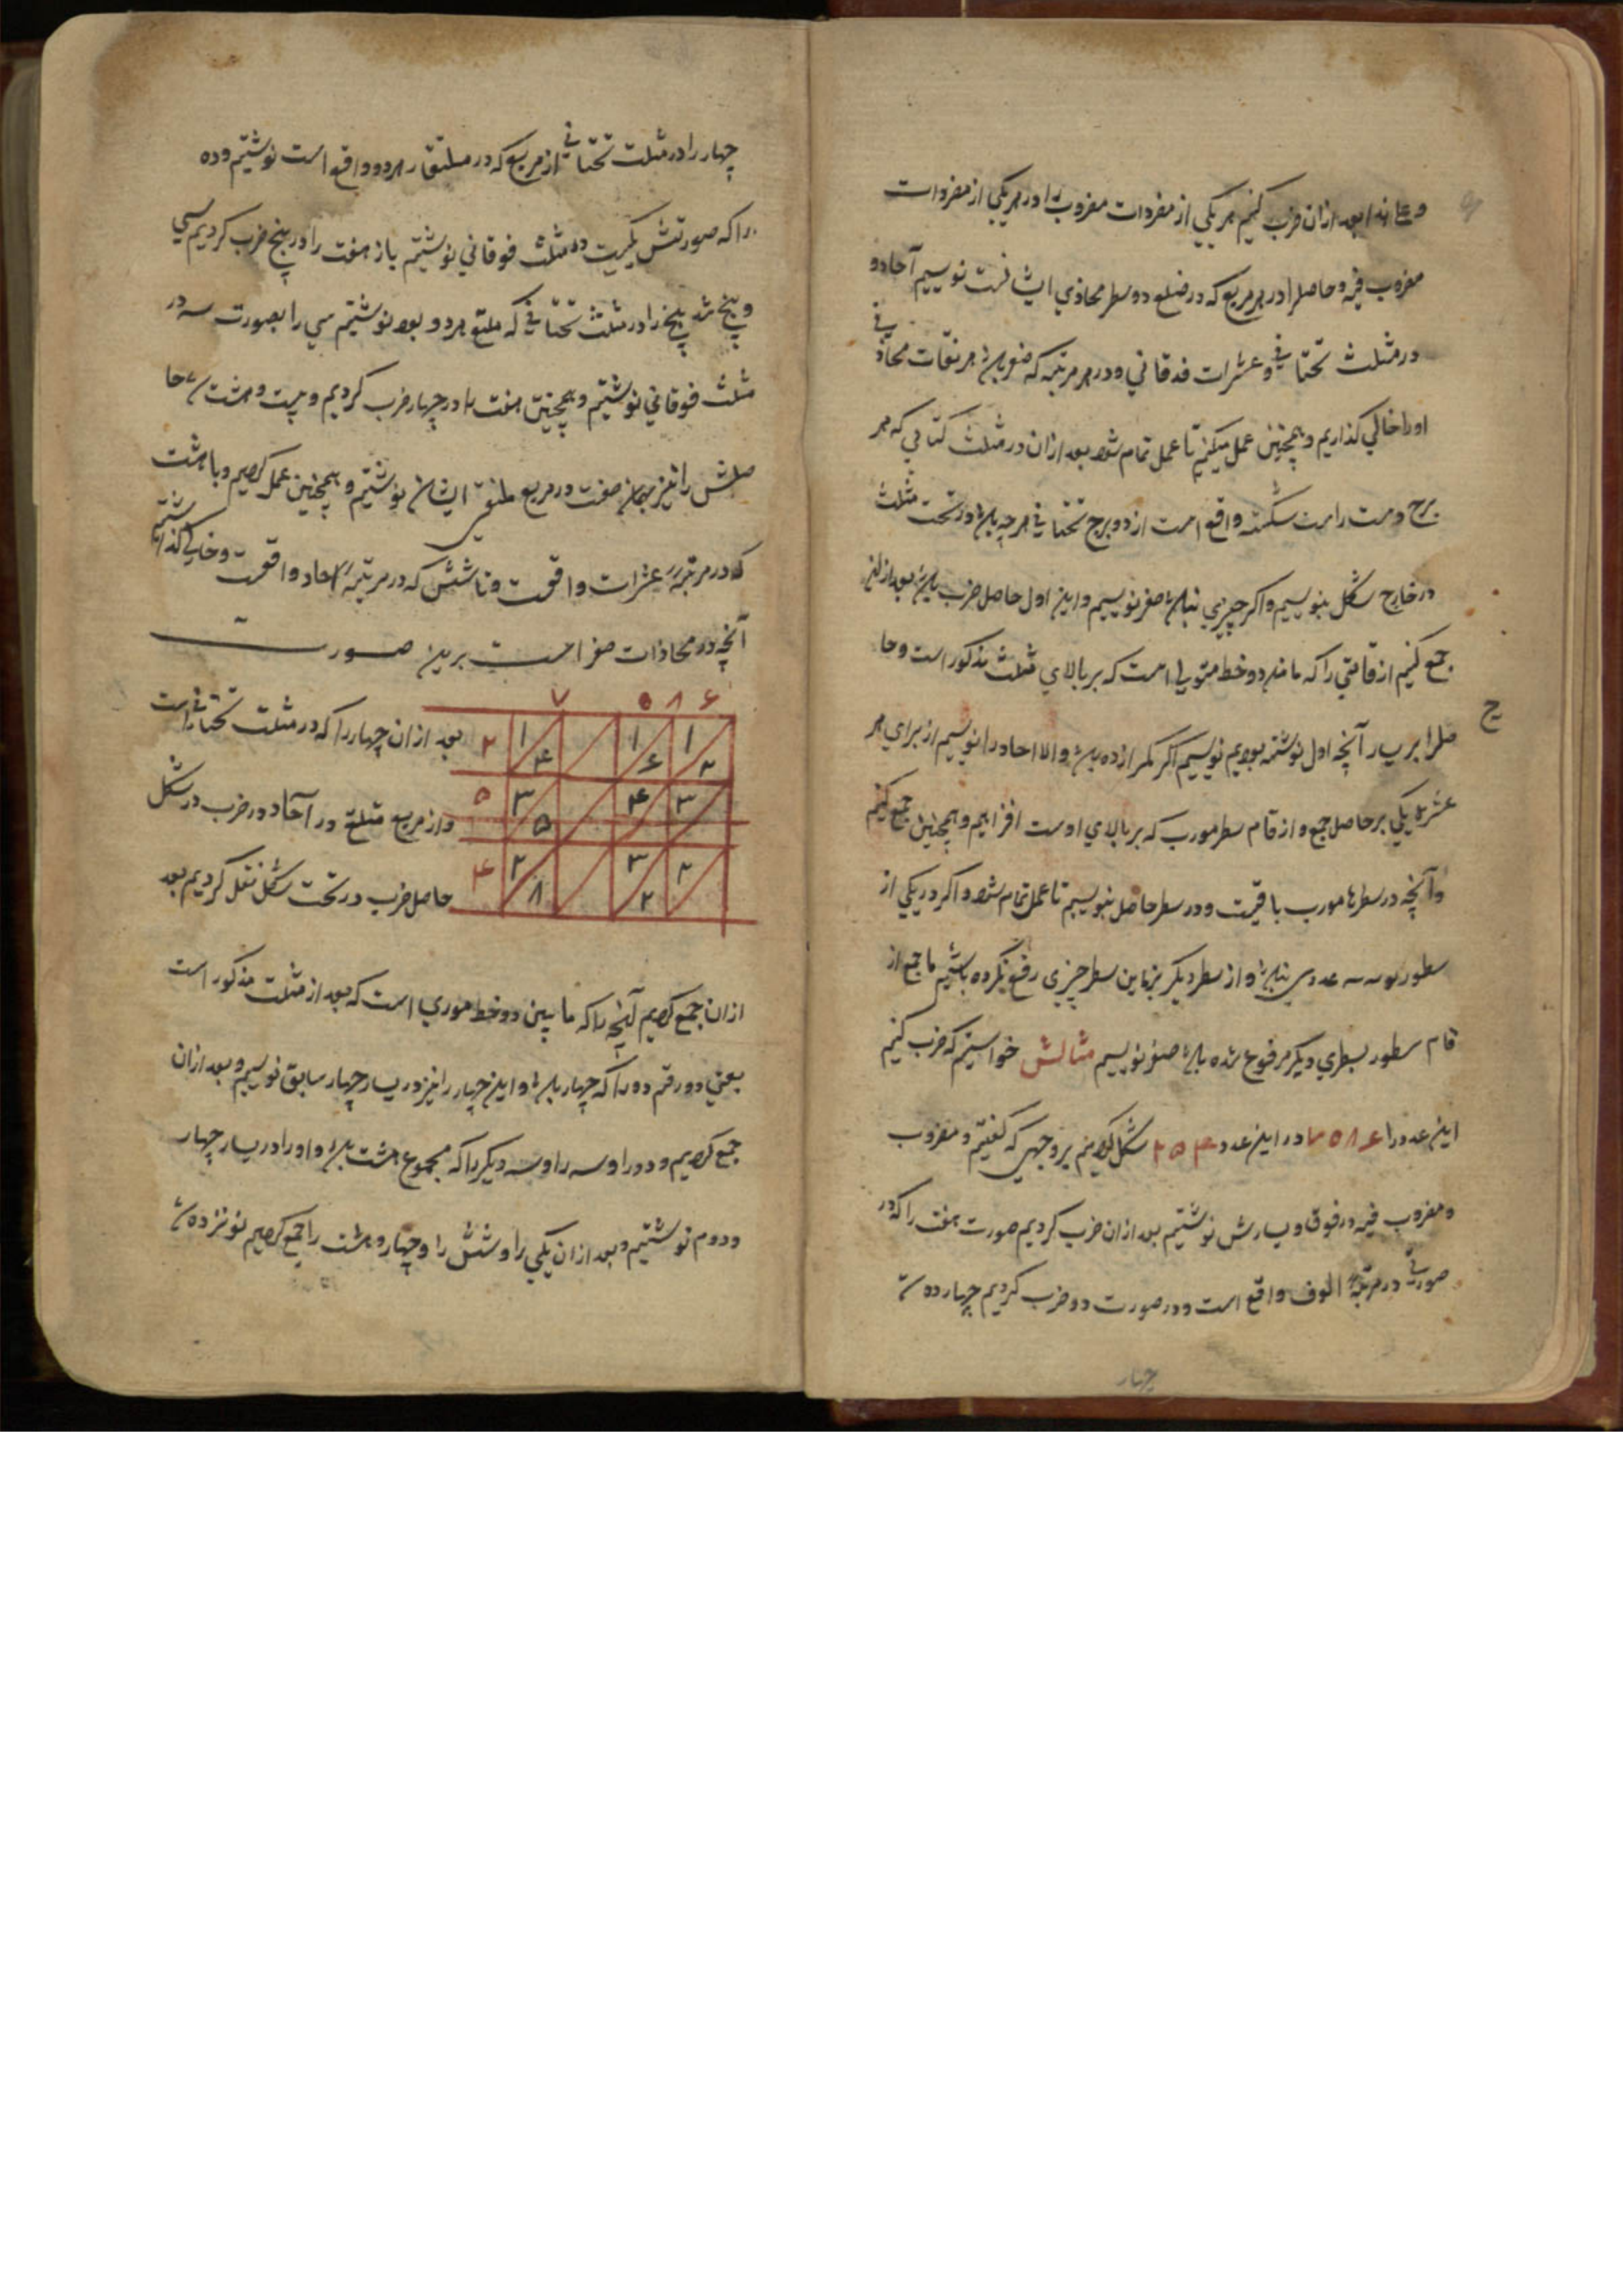 و علی هذا بعد ازان ضرب کنیم هر یکی از مفردات مضروب را در هر یکی از مفردات
مضروب فیه و حاصل را در هر مربع که در ضلع دو سطر محاذی ایشانست نویسیم آحاد
در مثلث تحتانی و عشرات فوقانی و در هر مرتبه که صفر باشد مربعات محاذی
او را خالی گذاریم و همچنین عمل میکنیم تا عمل تمام شود بعد ازان در مثلث که بر
برج دست راست شکسته واقع است از دو برج تحتانی هر چه باشد در تحت مثلث
در خارج شکل بنویسیم و اگر چیزی نباشد صفر نویسیم و این اول حاصل ضرب باشد بعد ازان
جمع کنیم ارقامی را که ما بین دو خط است که بر بالای مثلث مذکور است و حا
ج
صل را بر یسار آنچه اول نوشته بودیم نویسیم اگر کمتر از ده باشد و الا آحاد را نویسیم از برای هر
عشره یکی بر حاصل جمع و ارقام سطر مورب که بر بالای اوست افزاییم و همچنین جمع کنیم
و آنچه در سطرها مورب باقیست و در سطر حاصل بنویسیم تا عمل تمام شود و اگر در یکی از
سطور مورب عددی نباشد و از سطر دیگر نیز باین سطر چیزی رفع نکرده باشیم
قام سطور بسطری دیگر مرفوع شده باشد صفر نویسیم مثالش خواستیم که ضرب کنیم
این عدد را ۷۰۵۸۶ در این عدد ۲۵۴ شکل کردیم بر وجهی که گفتیم و مضروب
و مضروب فیه در فوق و یسارش نوشتیم بعد ازان ضرب کردیم صورت هفت را که در
صورتی در مرتبه الوف واقع است و در صورت دو ضرب کردیم چهارده شد
چهار
چهار را در مثلث تحتانی از مربع که در ملتقای هر دو واقع است نوشتیم و ده
را که صورتش یکیست در مثلث فوقانی نوشتیم باز هفت را در پنج ضرب کردیم سی
و پنج شد پنج را در مثلث تحتانی که ملتقی هر دو بود نوشتیم سی را بصورت سه در
مثلث فوقانی نوشتیم و همچنین هفت را در چهار ضرب کردیم و بیست و هشت شد حا
صلش را نیز بهمان صفت در مربع ملتقی ایشان نوشتیم و همچنین عمل کردیم و با هشت
که در مرتبه عشرات واقعست و با شش که در مرتبه آحاد واقعست و خالی گذاشتیم
آنچه در محاذات صفر است برین صورت
۷ ۰ ۸ ۶
۲ ۱ ۴ ۱ ۶ ۱ ۲
۵ ۳ ۵ ۴ ۳
۴ ۲ ۸ ۳ ۲ ۲
بعد ازان چهار را که در مثلث تحتانی است
و از مربع ملتقی در آحاد و ضرب در شکل
حاصل ضرب در تحت شکل نقل کردیم بعد
ازان جمع کردیم آنچه را که ما بین دو خط موربی است که بعد از مثلث مذکور است
یعنی دو رقم دو را که چهار باشد و این چهار را نیز در یسار چهار سابق نویسیم و بعد ازان
جمع کردیم و دو را و سه را و سه دیگر را که مجموع هشت باشد و او را در یسار چهار
و دوم نوشتیم و بعد ازان یکی را و شش را و چهار و هشت را جمع کردیم نوزده شد